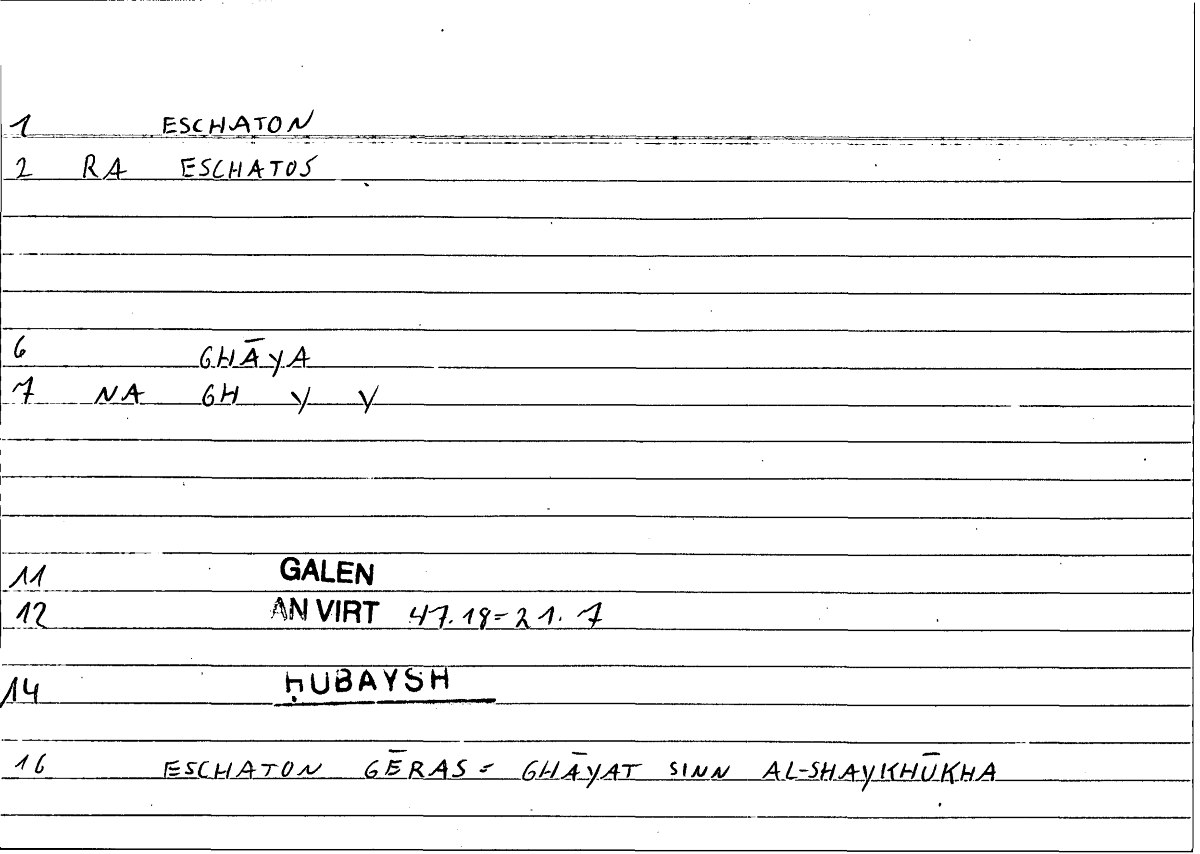 1 ESCHATON
2 RA ESCHATOS
6 GHĀYA
7 NA GH Y Y
11 GALEN
12 AN VIRT 47.18=21.7
14 ḤUBAYSH
16 ESCHATON GĒRAS = GHĀYAT SINN AL-SHAYKHŪKHA